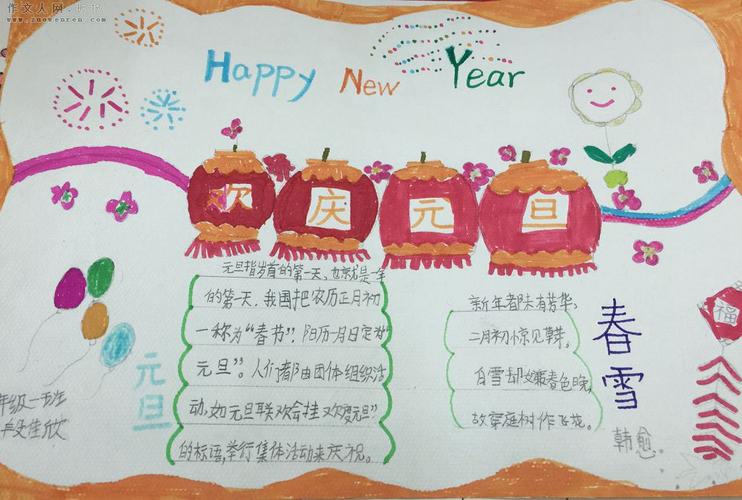 作文人网
www.zuowenren.com
Happy New Year
欢庆元旦
元旦指岁首的第一天,也就是一年
的第一天,我国把农历正月初
一称为“春节”,阳历一月一日定为
元旦”。人们都由团体组织活
动,如元旦联欢会挂“欢度元旦”
的标语,举行集体活动来庆祝。
元旦
年级一班
段佳欣
新年都未有芳华,
二月初惊见草芽。
白雪却嫌春色晚,
故穿庭树作飞花。
春雪
韩愈
福